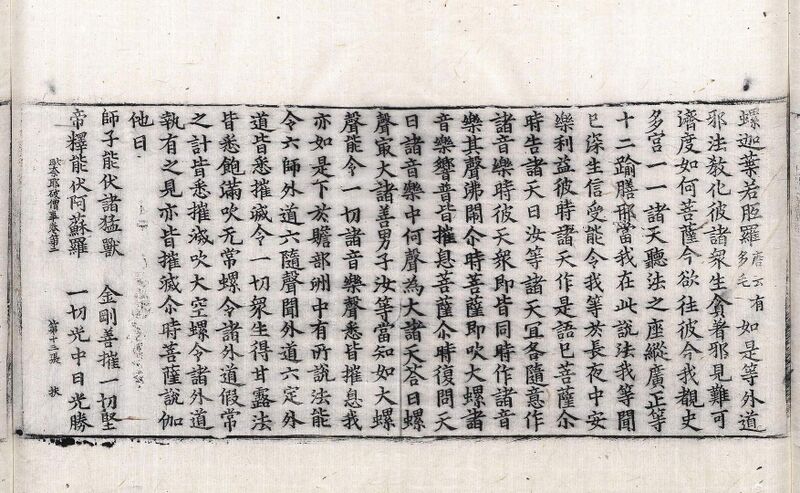 螺迦葉若胝羅唐云有多毛如是等外道
邪法教化彼諸衆生貪著邪見難可
濟度如何菩薩今欲往彼今我覩史
多宫一一諸天聽法之座縱廣正等
十二踰膳那當我在此說法我等聞
已深生信受能令我等於長夜中安
樂利益彼時諸天作是語已菩薩尒
時告諸天曰汝等諸天宜各隨意作
諸音樂時彼天衆即皆同時作諸音
樂其聲沸閙尒時菩薩即吹大螺諸
音樂響普皆摧息菩薩尒時復問天
曰諸音樂中何聲為大諸天荅曰螺
聲㝡大諸善男子汝等當知如大螺
聲能令一切諸音樂聲悉皆摧息我
亦如是下於贍部洲中有所說法能
令六師外道六隨聲聞外道六定外
道皆悉摧滅令一切衆生得甘露法
皆悉飽滿吹无常螺令諸外道假常
之計皆悉摧滅吹大空螺令諸外道
執有之見亦皆摧滅尒時菩薩說伽
他曰
師子能伏諸猛獸 金剛善摧一切堅
帝釋能伏阿蘇羅 一切光中日光勝
第十三張